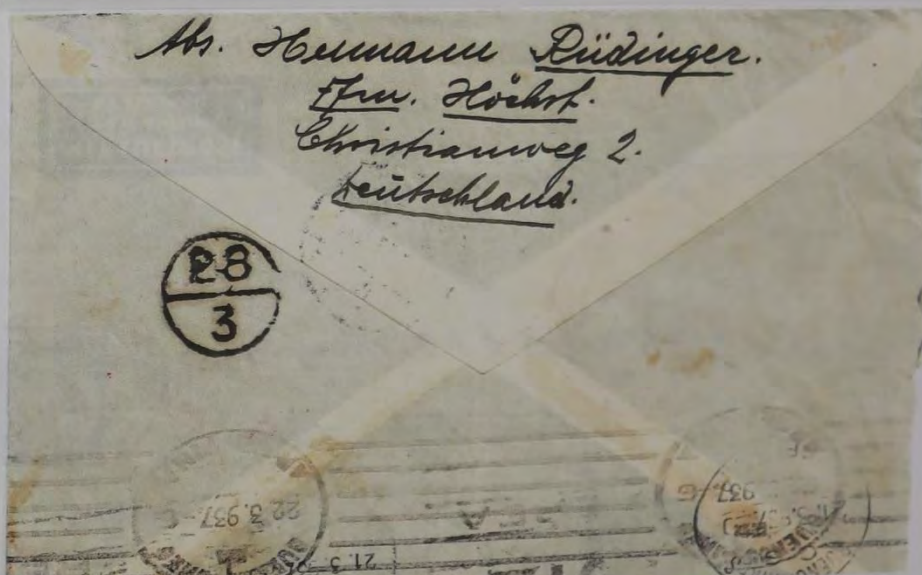 Abs. Hermann Rüdinger.
Ffm. Höchst.
Christianweg 2.
Deutschland.
28
3
22.3.937
937
21.3